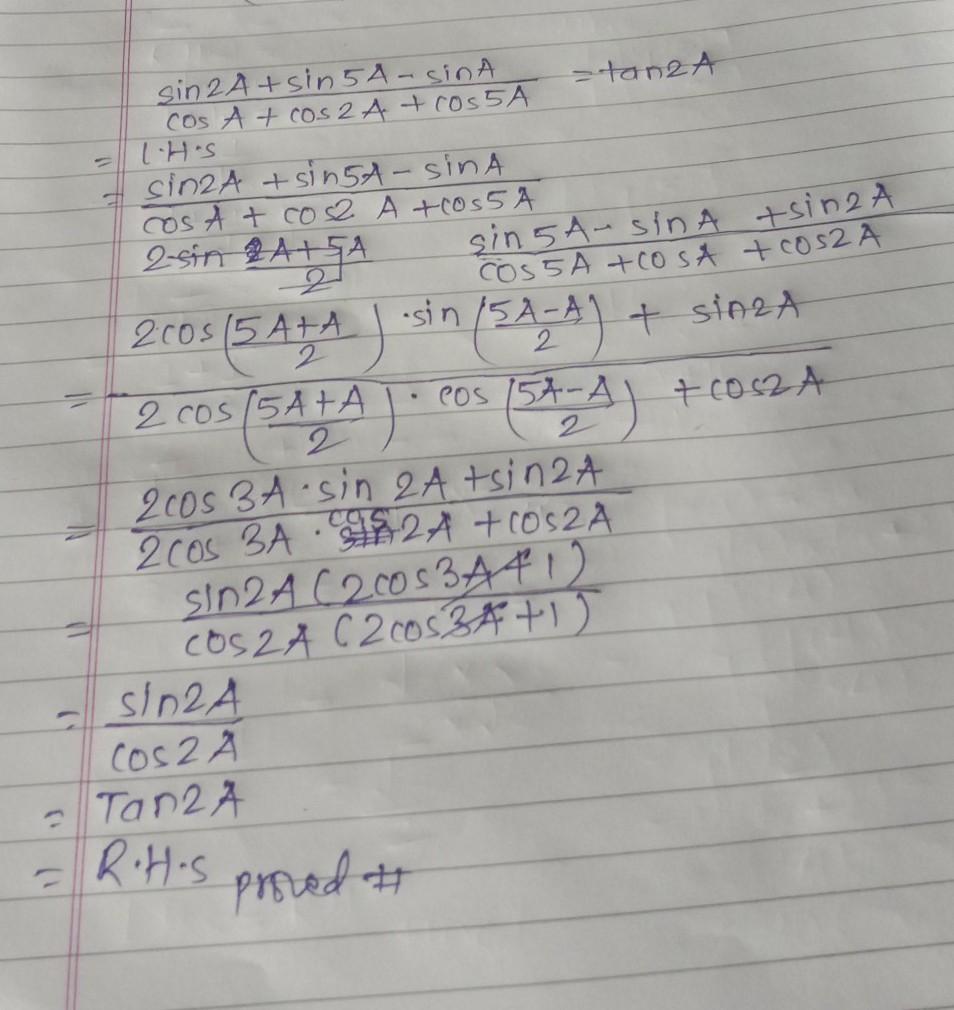 sin2A + sin5A - sinA / cosA + cos2A + cos5A = tan2A
= L.H.S
= sin2A + sin5A - sinA / cosA + cos2A + cos5A
2 sin 2A+5A / 2
sin5A - sinA + sin2A / cos5A + cosA + cos2A
= 2cos(5A+A / 2) · sin(5A-A / 2) + sin2A / 2cos(5A+A / 2) · cos(5A-A / 2) + cos2A
= 2cos3A · sin2A + sin2A / 2cos3A · cos2A + cos2A
= sin2A (2cos3A+1) / cos2A (2cos3A+1)
= sin2A / cos2A
= Tan2A
= R.H.S proved #